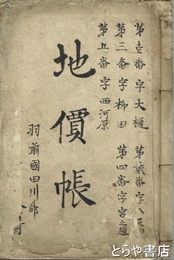 第壱番字大樋
第弐番字八
第三番字柳田
第四番字宮之
第五番字西河原
地價帳
羽前國田川郡
とらや書店